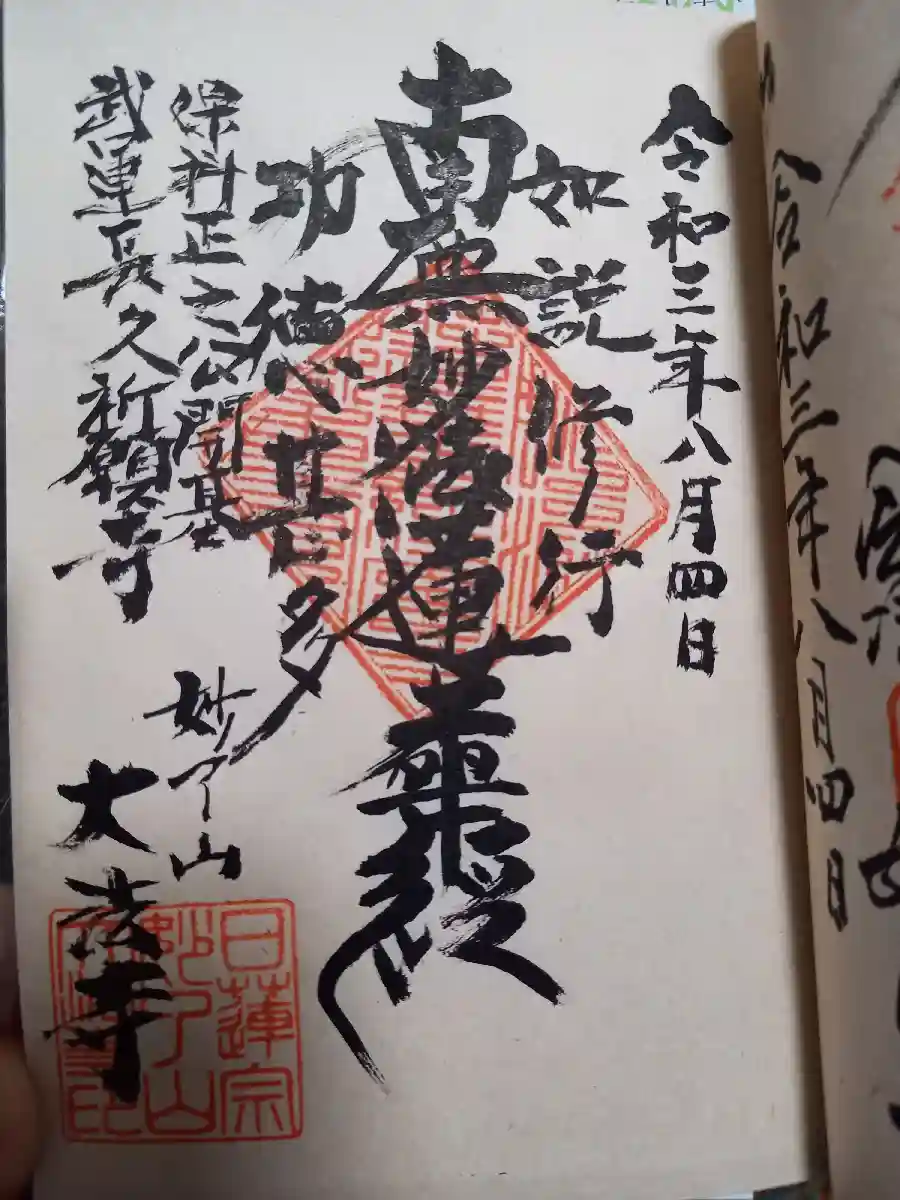 令和三年八月四日
如説修行
南無妙法蓮華経
功徳甚多
保科正之公開基
武運長久祈願寺
妙了山
大法寺
日蓮宗
妙了山
令和三年八月四日